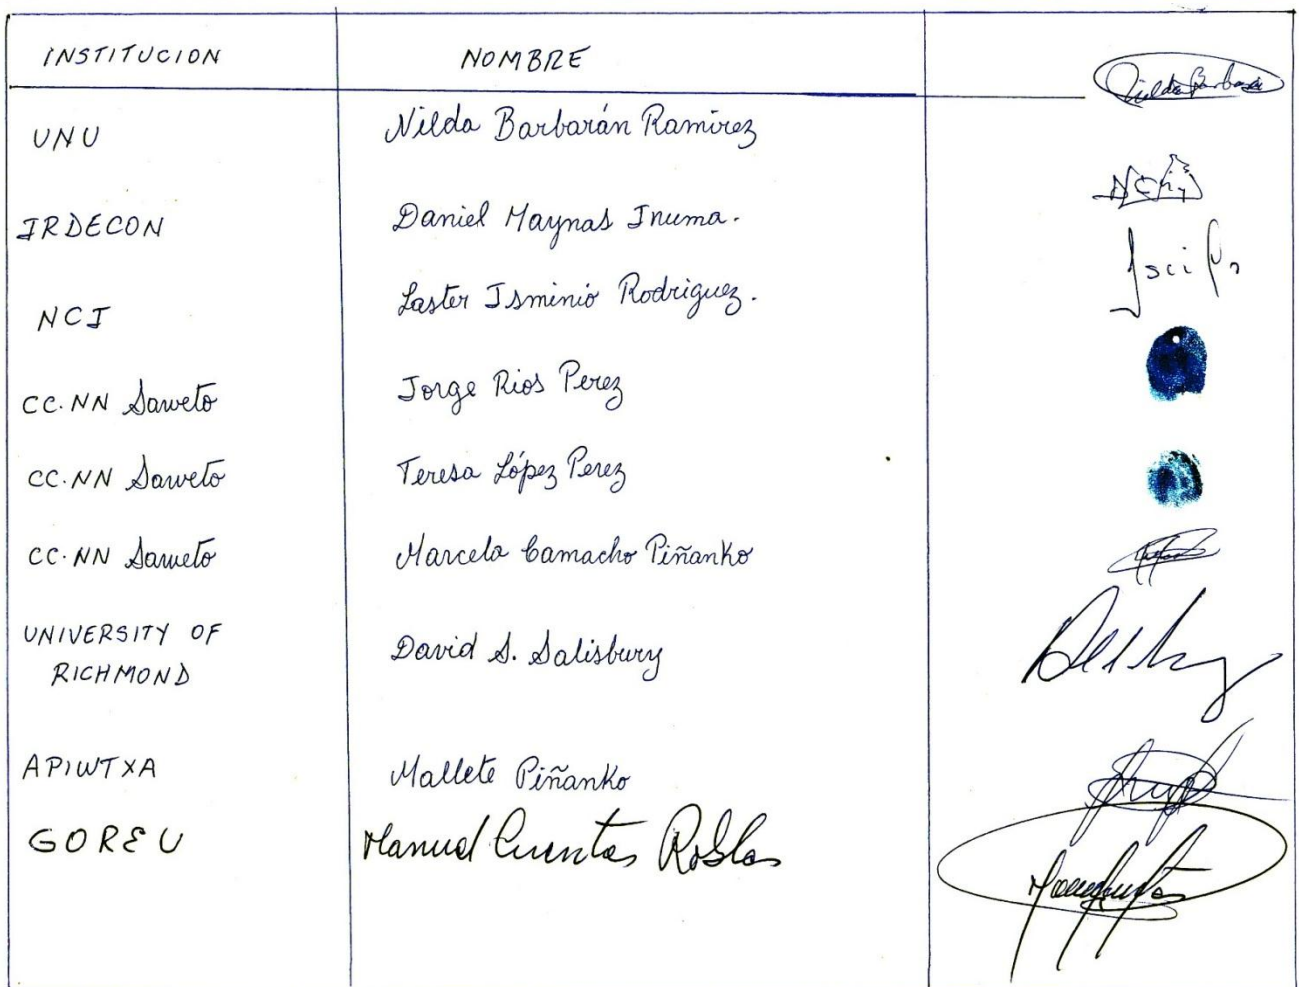 INSTITUCION NOMBRE
UNU Nilda Barbarán Ramirez
IRDECON Daniel Maynas Inuma.
NCI Laster Isminio Rodriguez.
CC.NN Saweto Jorge Rios Perez
CC.NN Saweto Teresa López Perez
CC.NN Saweto Marcelo Camacho Piñanko
UNIVERSITY OF
RICHMOND David S. Salisbury
APIWTXA Mallete Piñanko
GOREU Manuel Cuentas Robles